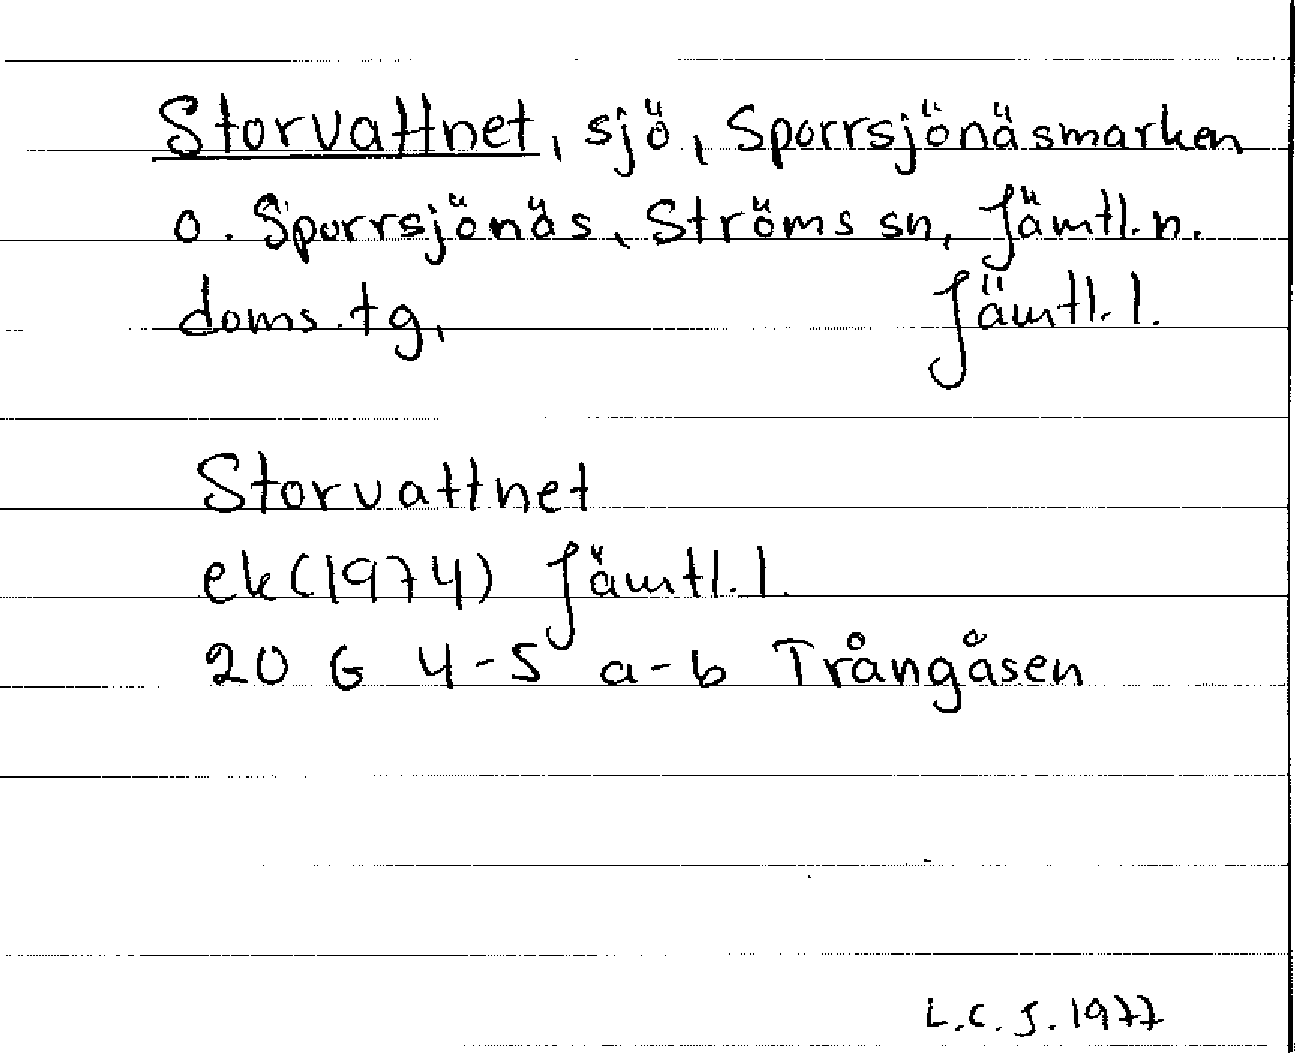 Storvattnet, sjö, Sporrsjönäsmarken
o. Sporrsjönäs, Ströms sn, Jämtl. n.
doms. tg, Jämtl. l.
Storvattnet
ek (1974) Jämtl. l.
20 G 4-5 a-b Trångåsen
L.C. J. 1977